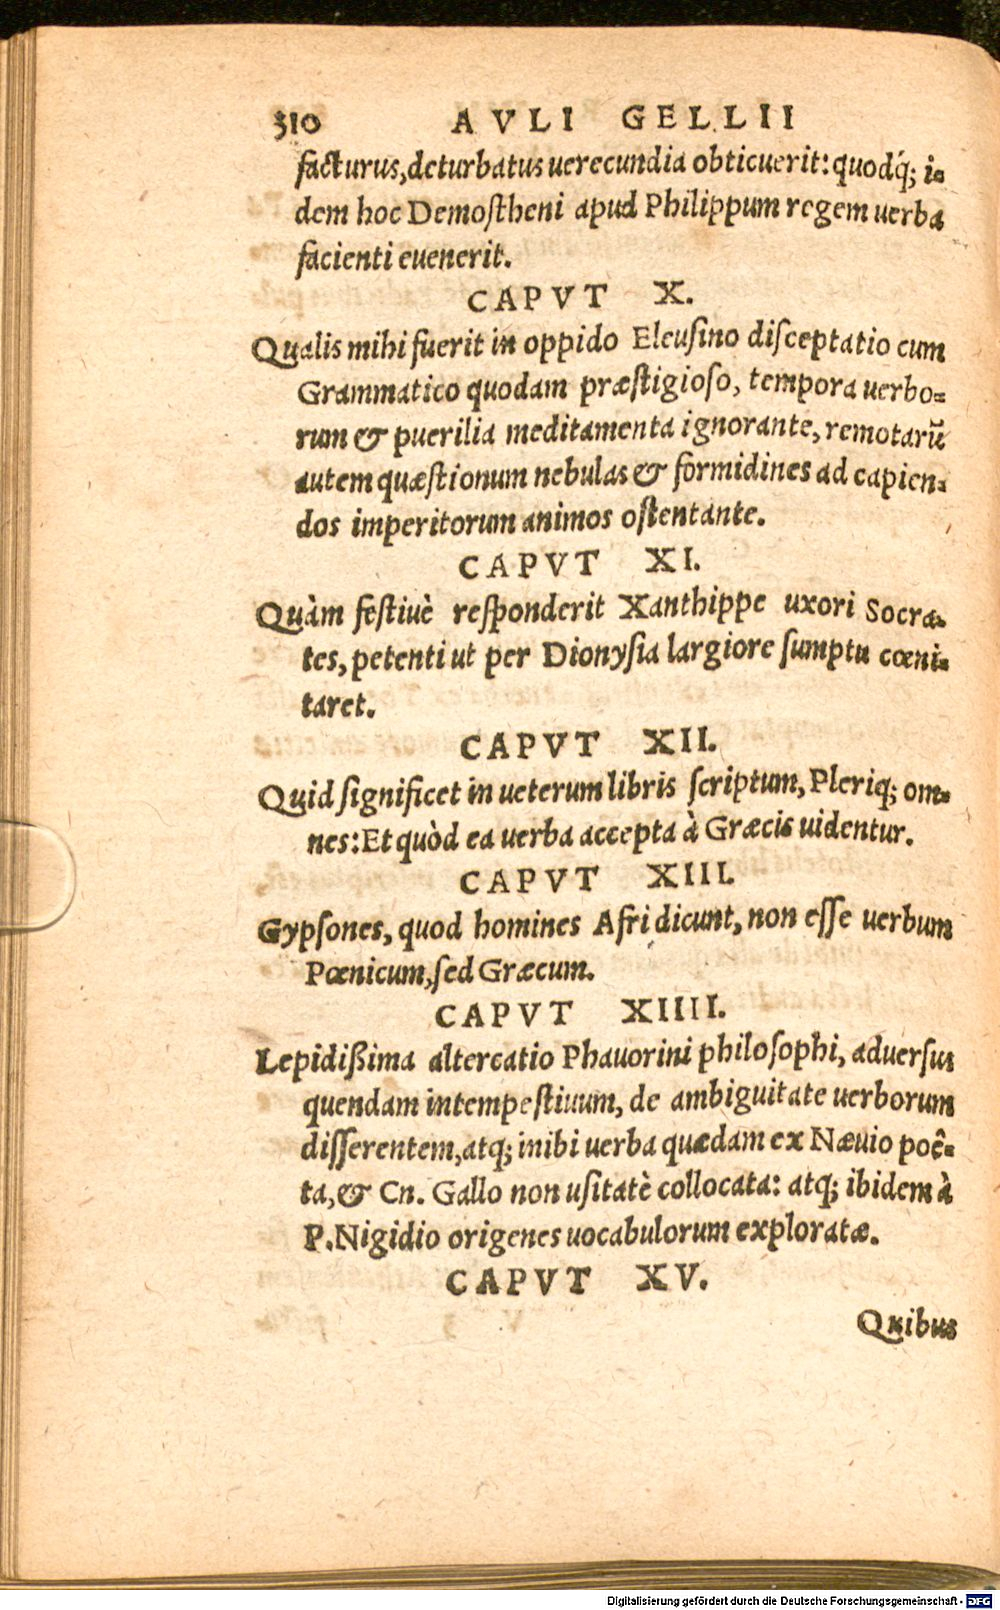 310 AVLI GELLII
facturus, deturbatus uerecundia obticuerit: quodq́; i-
dem hoc Demostheni apud Philippum regem uerba
facienti euenerit.
CAPVT X.
Qualis mihi fuerit in oppido Eleusino disceptatio cum
Grammatico quodam præstigioso, tempora uerbo-
rum & puerilia meditamenta ignorante, remotarũ
autem quæstionum nebulas & formidines ad capien-
dos imperitorum animos ostentante.
CAPVT XI.
Quàm festiuè responderit Xanthippe uxori Socra-
tes, petenti ut per Dionysia largiore sumptu cœni-
taret.
CAPVT XII.
Quid significet in ueterum libris scriptum, Pleriq; om-
nes: Et quòd ea uerba accepta à Græcis uidentur.
CAPVT XIII.
Gypsones, quod homines Afri dicunt, non esse uerbum
Pœnicum, sed Græcum.
CAPVT XIIII.
Lepidißima altercatio Phauorini philosophi, aduersus
quendam intempestiuum, de ambiguitate uerborum
differentem, atq; inibi uerba quædam ex Næuio poê-
ta, & Cn. Gallo non usitatè collocata: atq; ibidem à
P. Nigidio origenes uocabulorum exploratæ.
CAPVT XV.
Quibus
Digitalisierung gefördert durch die Deutsche Forschungsgemeinschaft - DFG